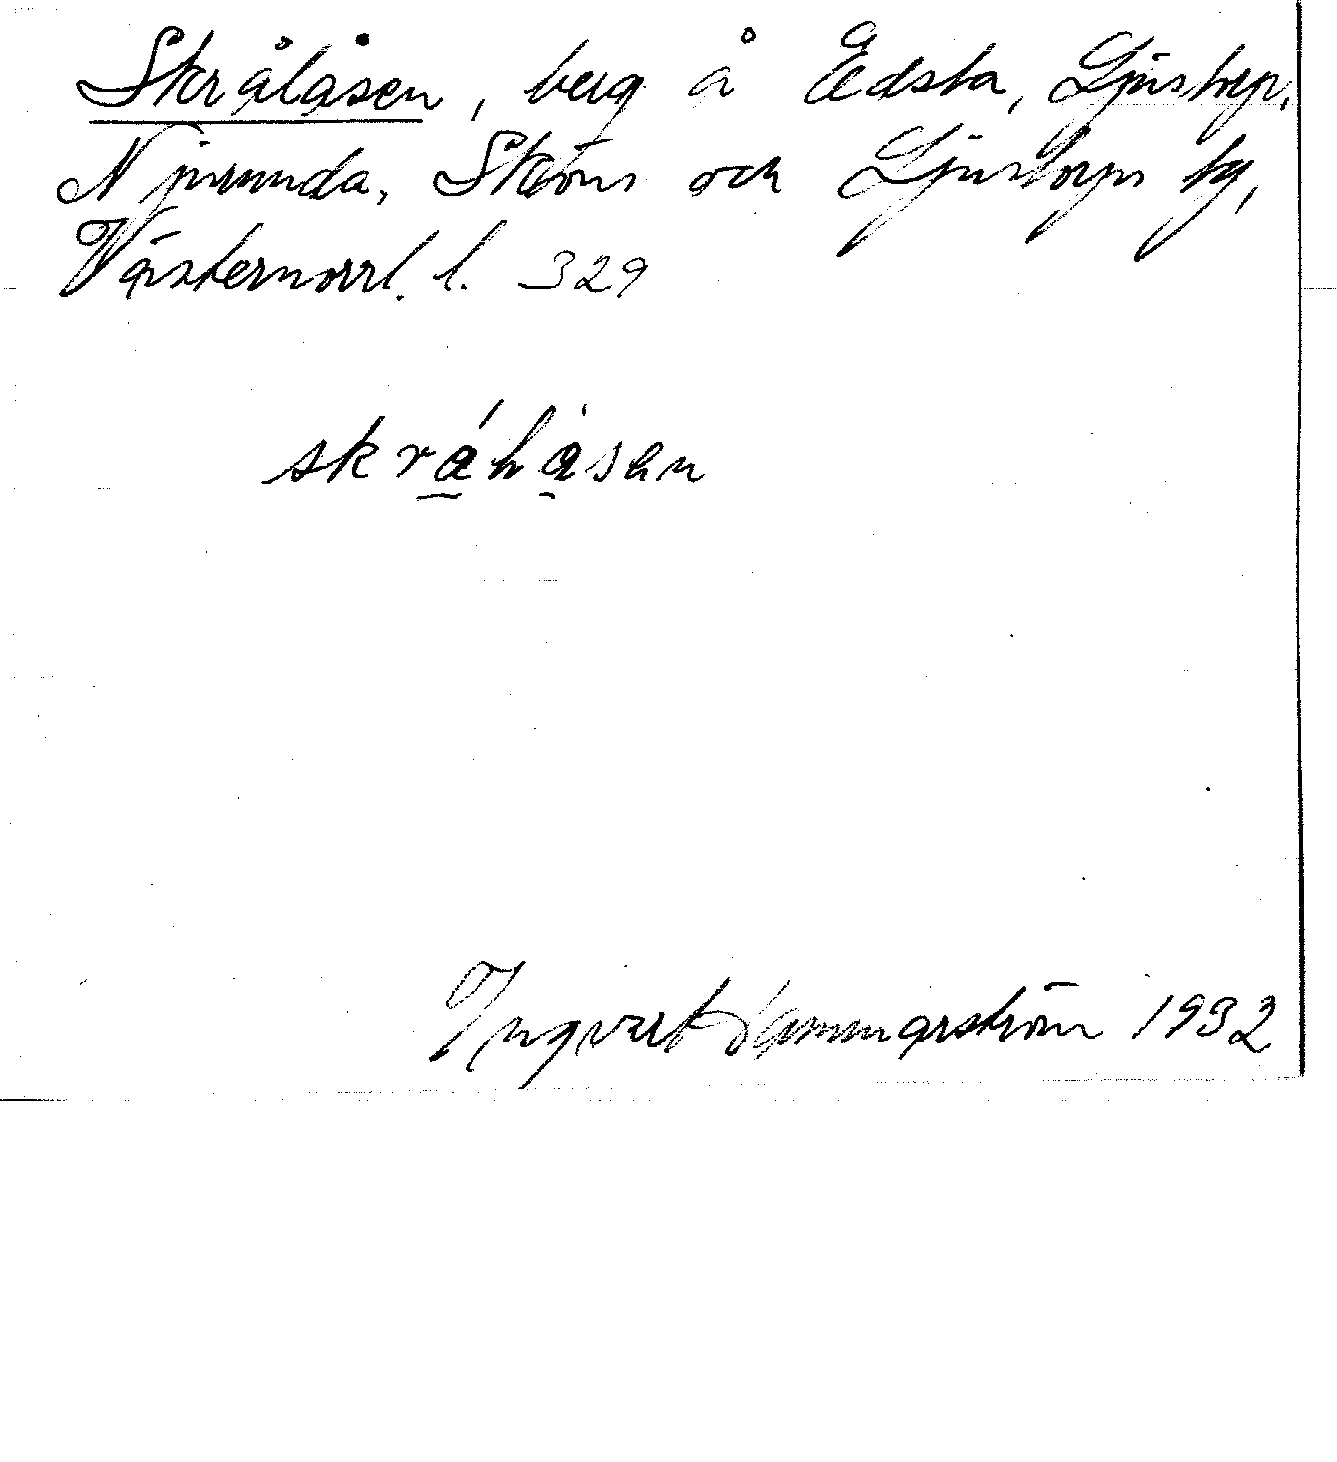 Skrålåsen, berg å Edsta, Ljustorp,
Njurunda, Sköns och Ljustorps tg,
Västernorrl. l. 329
skrålåsen
Ingvart Hammarström 1932